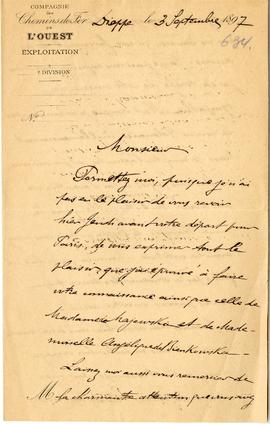 COMPAGNIE
des
Chemins de Fer
DE
L'OUEST
EXPLOITATION
DIVISION
Dieppe le 3 Septembre 1897
684.
N°
Monsieur
Permettez moi, puisque je n'ai
pas eu le plaisir de vous revoir
hier Jeudi avant votre départ pour
Paris, de vous exprimer tout le
plaisir que j'ai éprouvé à faire
votre connaissance ainsi que celle de
Madame Majewska et de Made-
moiselle Angélique de
Laissez moi aussi vous remercier de
la charmante attention que